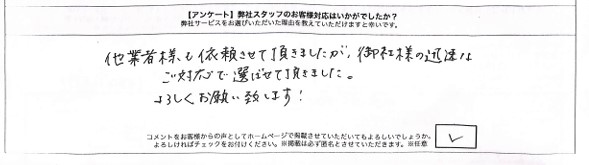 【アンケート】弊社スタッフのお客様対応はいかがでしたか?
弊社サービスをお選びいただいた理由を教えていただけますと幸いです。
他業者様も依頼させて頂きましたが、御社様の迅速な
ご対応で選ばせて頂きました。
よろしくお願い致します!
コメントをお客様からの声としてホームページで掲載させていただいてもよろしいでしょうか。
よろしければチェックをお付けください。※掲載は必ず匿名とさせていただきます。※任意